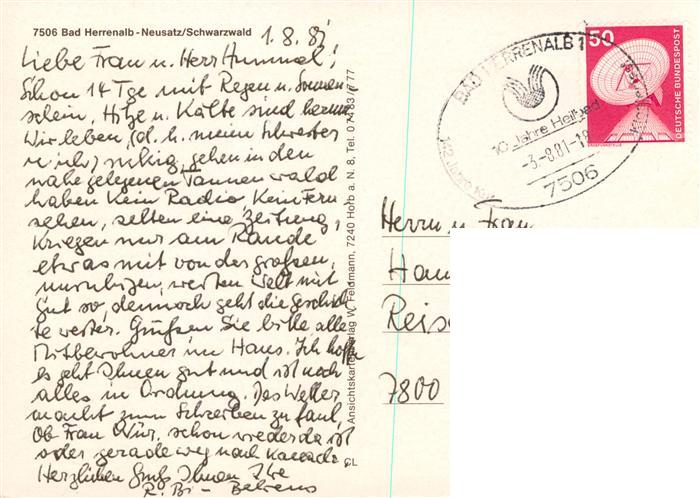 7506 Bad Herrenalb - Neusatz/Schwarzwald
1.8.81
Liebe Frau u. Herr Hummel!
Schon 14 Tge mit Regen u. Sonnen
schein, Hitze u. Kälte sind herum
Wir leben, (d. h. meine Schwester
u. ich) ruhig, gehen in den
nahe gelegenen Tannenwald
haben kein Radio, kein Fern
sehen, selten eine Zeitung,
Kriegen nur am Rande
etwas mit von der großen,
unruhigen, weiten Welt mit
Gut so, dennoch geht die Geschich
te weiter. Grüßen Sie bitte alle
Mitbewohner im Haus. Ich hoffe
es geht Ihnen gut und ist noch
alles in Ordnung. Das Wetter
macht zum Schreiben zu faul,
Ob Frau schon wieder da ist
oder gerade weg nach Kanada.
Herzlichen Gruß Ihnen Ihre
Behrens
Ansichtskartenverlag W. Feldmann, 7240 Horb a. N. 8, Tel. 0 74 83/
CL
BAD HERRENALB 1
10 Jahre Heilbad
-3.-8.81-18
7506
50
DEUTSCHE BUNDESPOST
Herrn u. Frau
Reis
7800